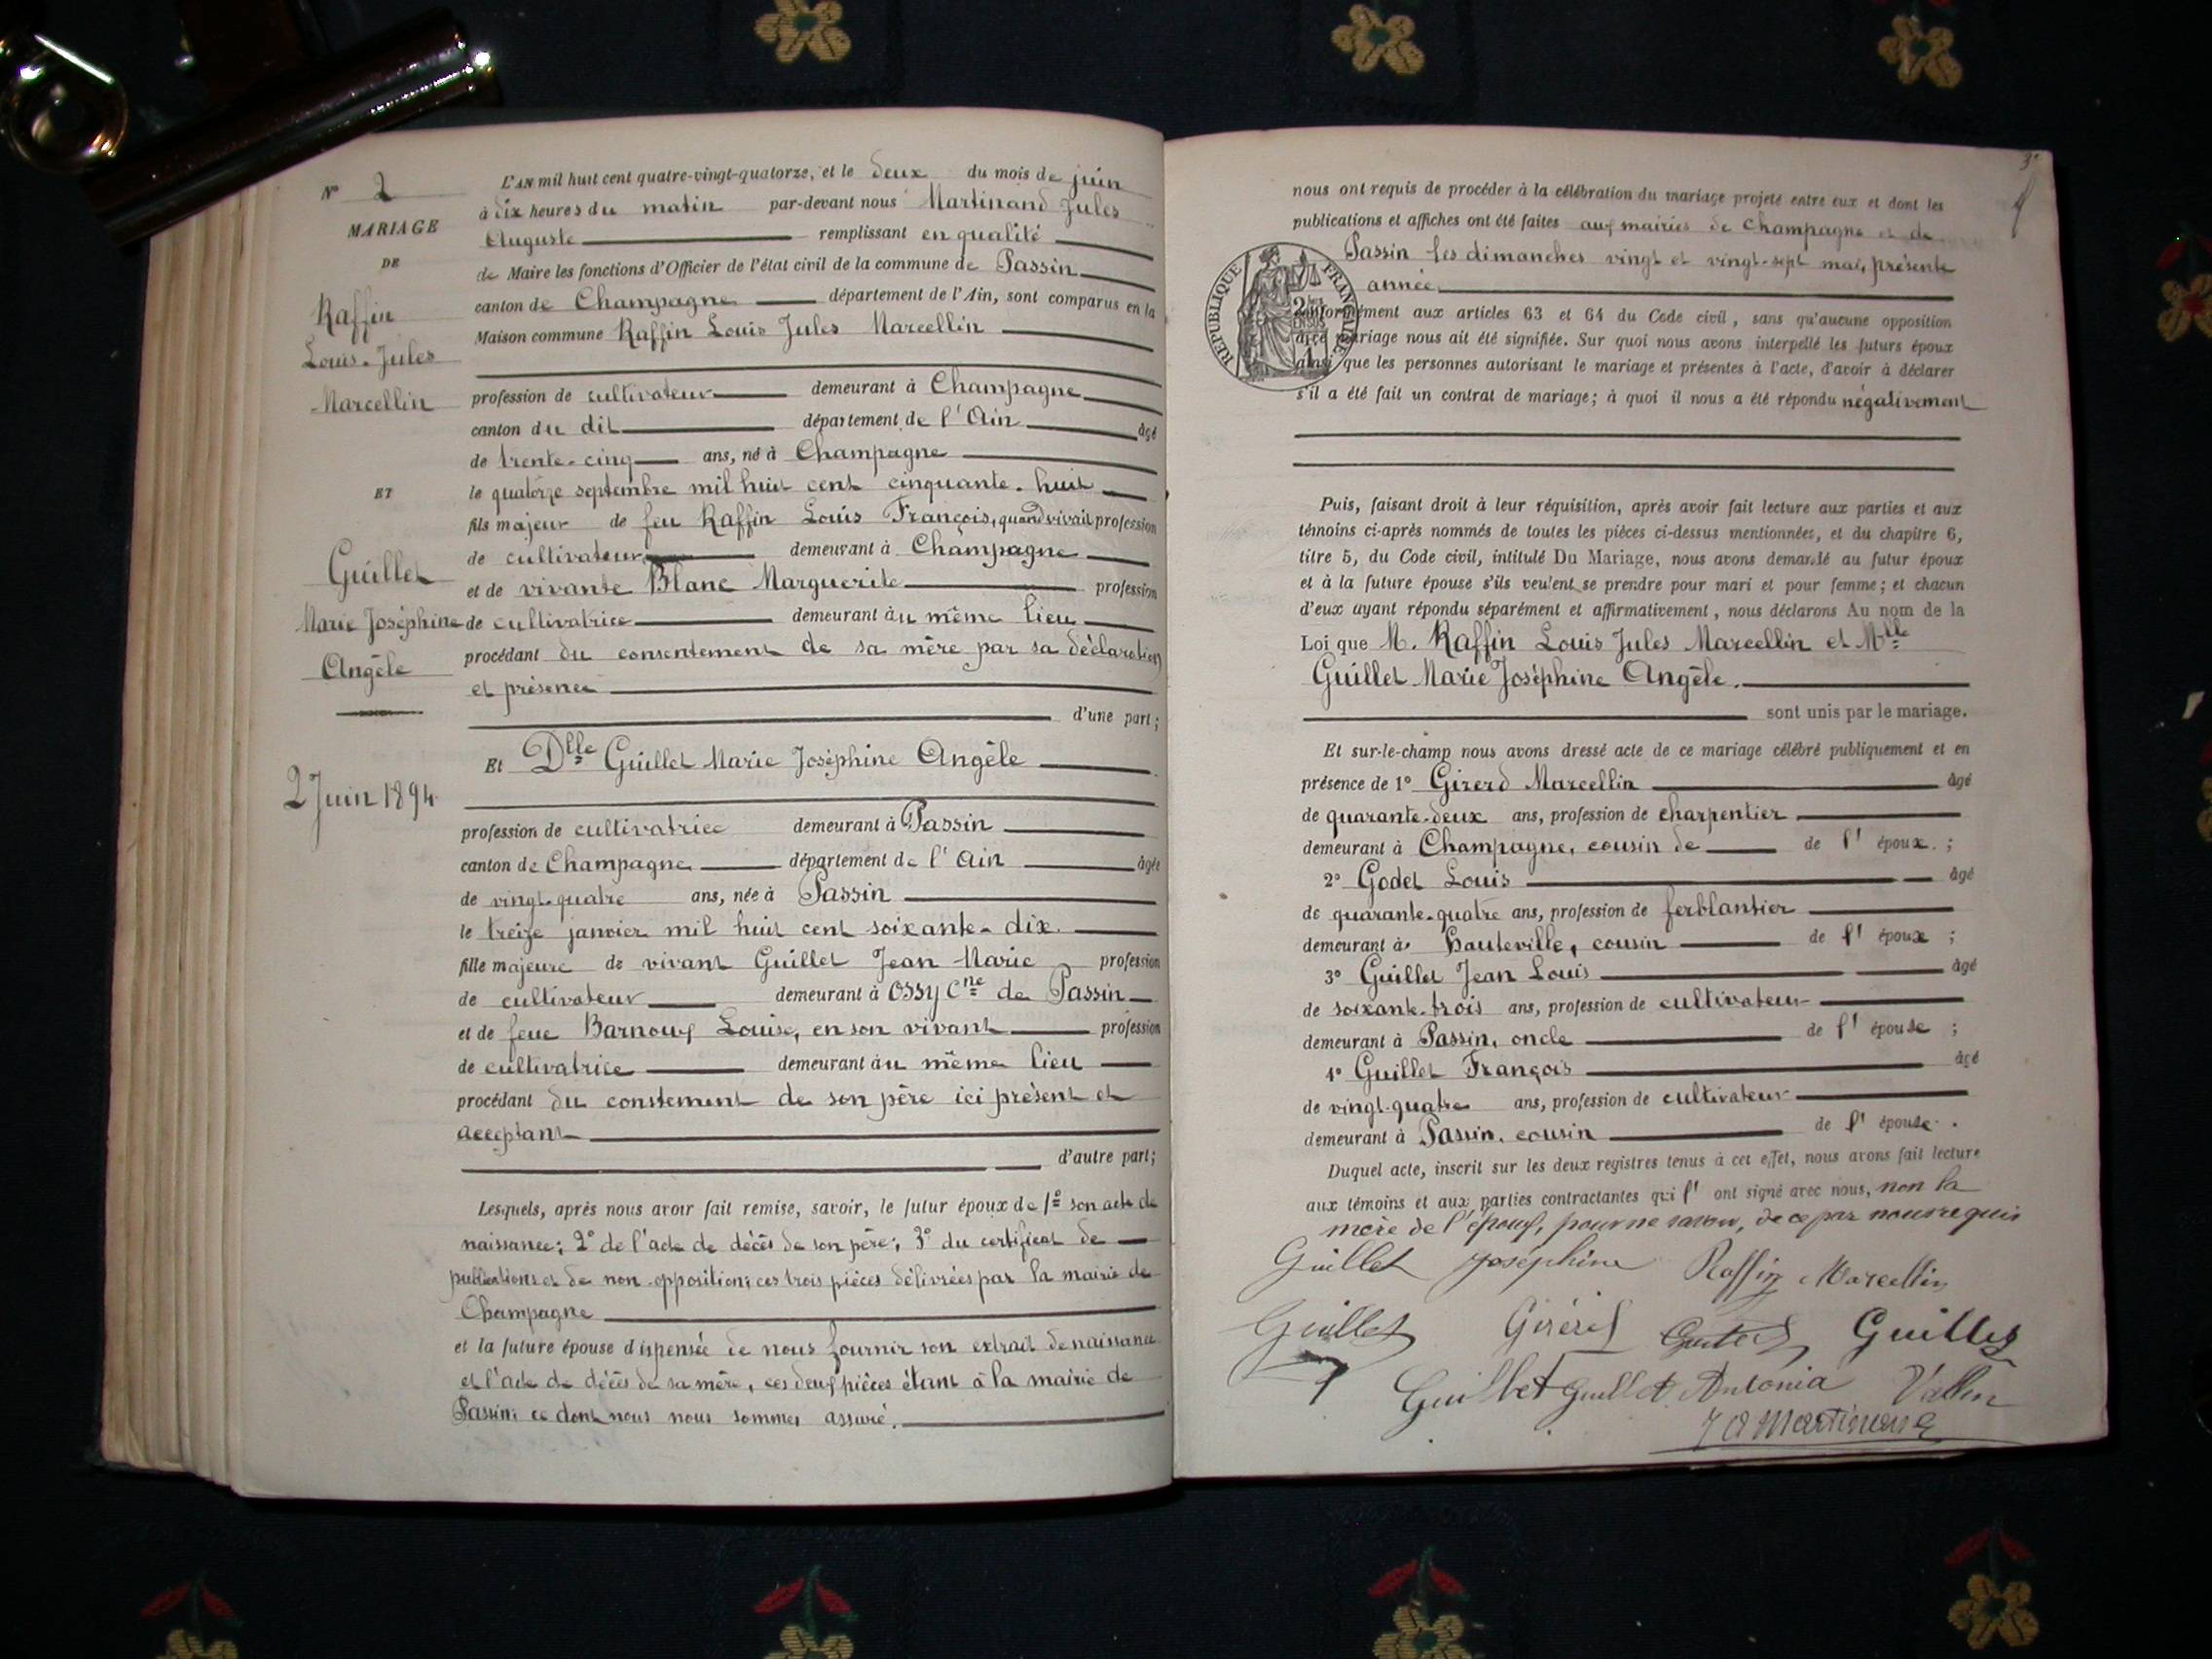 N° 2
MARIAGE
DE
Raffin
Louis-Jules
Marcellin
ET
Guillet
Marie Joséphine
Angèle
2 Juin 1894
L'AN mil huit cent quatre-vingt-quatorze, et le deux du mois de juin
à dix heures du matin par-devant nous Martinand Jules
Auguste remplissant en qualité
de Maire les fonctions d'Officier de l'état civil de la commune de Passin
canton de Champagne département de l'Ain, sont comparus en la
Maison commune Raffin Louis Jules Marcellin
profession de cultivateur demeurant à Champagne
canton du dit département de l'Ain âgé
de trente-cinq ans, né à Champagne
le quatorze septembre mil huit cent cinquante-huit
fils majeur de feu Raffin Louis François, quand vivait profession
de cultivateur demeurant à Champagne
et de vivante Blanc Marguerite profession
de cultivatrice demeurant au même lieu
procédant du consentement de sa mère par sa déclaration
et présence
d'une part;
Et Dlle Guillet Marie Joséphine Angèle
profession de cultivatrice demeurant à Passin
canton de Champagne département de l'Ain âgée
de vingt-quatre ans, née à Passin
le treize janvier mil huit cent soixante-dix
fille majeure de vivant Guillet Jean Marie profession
de cultivateur demeurant à Ossy Cne de Passin
et de feue Barnoux Louise, en son vivant profession
de cultivatrice demeurant au même lieu
procédant du constement de son père ici présent et
acceptant
d'autre part;
Lesquels, après nous avoir fait remise, savoir, le futur époux de 1° son acte de
naissance; 2° de l'acte de décès de son père; 3° du certificat de
publications et de non-opposition; ces trois pièces délivrées par la mairie de
Champagne
et la future épouse dispensée de nous fournir son extrait de naissance
et l'acte de décès de sa mère, ces deux pièces étant à la mairie de
Passin; ce dont nous nous sommes assuré.
3
nous ont requis de procéder à la célébration du mariage projeté entre eux et dont les
publications et affiches ont été faites aux mairies de Champagne et de
Passin les dimanches vingt et vingt-sept mai, présente
année
RÉPUBLIQUE FRANÇAISE
conformément aux articles 63 et 64 du Code civil, sans qu'aucune opposition
à ce mariage nous ait été signifiée. Sur quoi nous avons interpellé les futurs époux
ainsi que les personnes autorisant le mariage et présentes à l'acte, d'avoir à déclarer
s'il a été fait un contrat de mariage; à quoi il nous a été répondu négativement
Puis, faisant droit à leur réquisition, après avoir fait lecture aux parties et aux
témoins ci-après nommés de toutes les pièces ci-dessus mentionnées, et du chapitre 6,
titre 5, du Code civil, intitulé Du Mariage, nous avons demandé au futur époux
et à la future épouse s'ils veulent se prendre pour mari et pour femme; et chacun
d'eux ayant répondu séparément et affirmativement, nous déclarons Au nom de la
Loi que M. Raffin Louis Jules Marcellin et Mlle
Guillet Marie Joséphine Angèle.
sont unis par le mariage.
Et sur-le-champ nous avons dressé acte de ce mariage célébré publiquement et en
présence de 1° Girerd Marcellin âgé
de quarante-deux ans, profession de charpentier
demeurant à Champagne, cousin de de l'époux;
2° Godet Louis âgé
de quarante-quatre ans, profession de ferblantier
demeurant à Hauteville, cousin de l'époux;
3° Guillet Jean Louis âgé
de soixante-trois ans, profession de cultivateur
demeurant à Passin, oncle de l'épouse;
4° Guillet François âgé
de vingt-quatre ans, profession de cultivateur
demeurant à Passin, cousin de l'épouse.
Duquel acte, inscrit sur les deux registres tenus à cet effet, nous avons fait lecture
aux témoins et aux parties contractantes qui l'ont signé avec nous, non la
mère de l'époux, pour ne savoir, de ce par nous requis
Guillet Joséphine Raffin Marcellin
Guillet Girerd Guillet
Guillet Guillet Antonia Vallin
J A Martinand